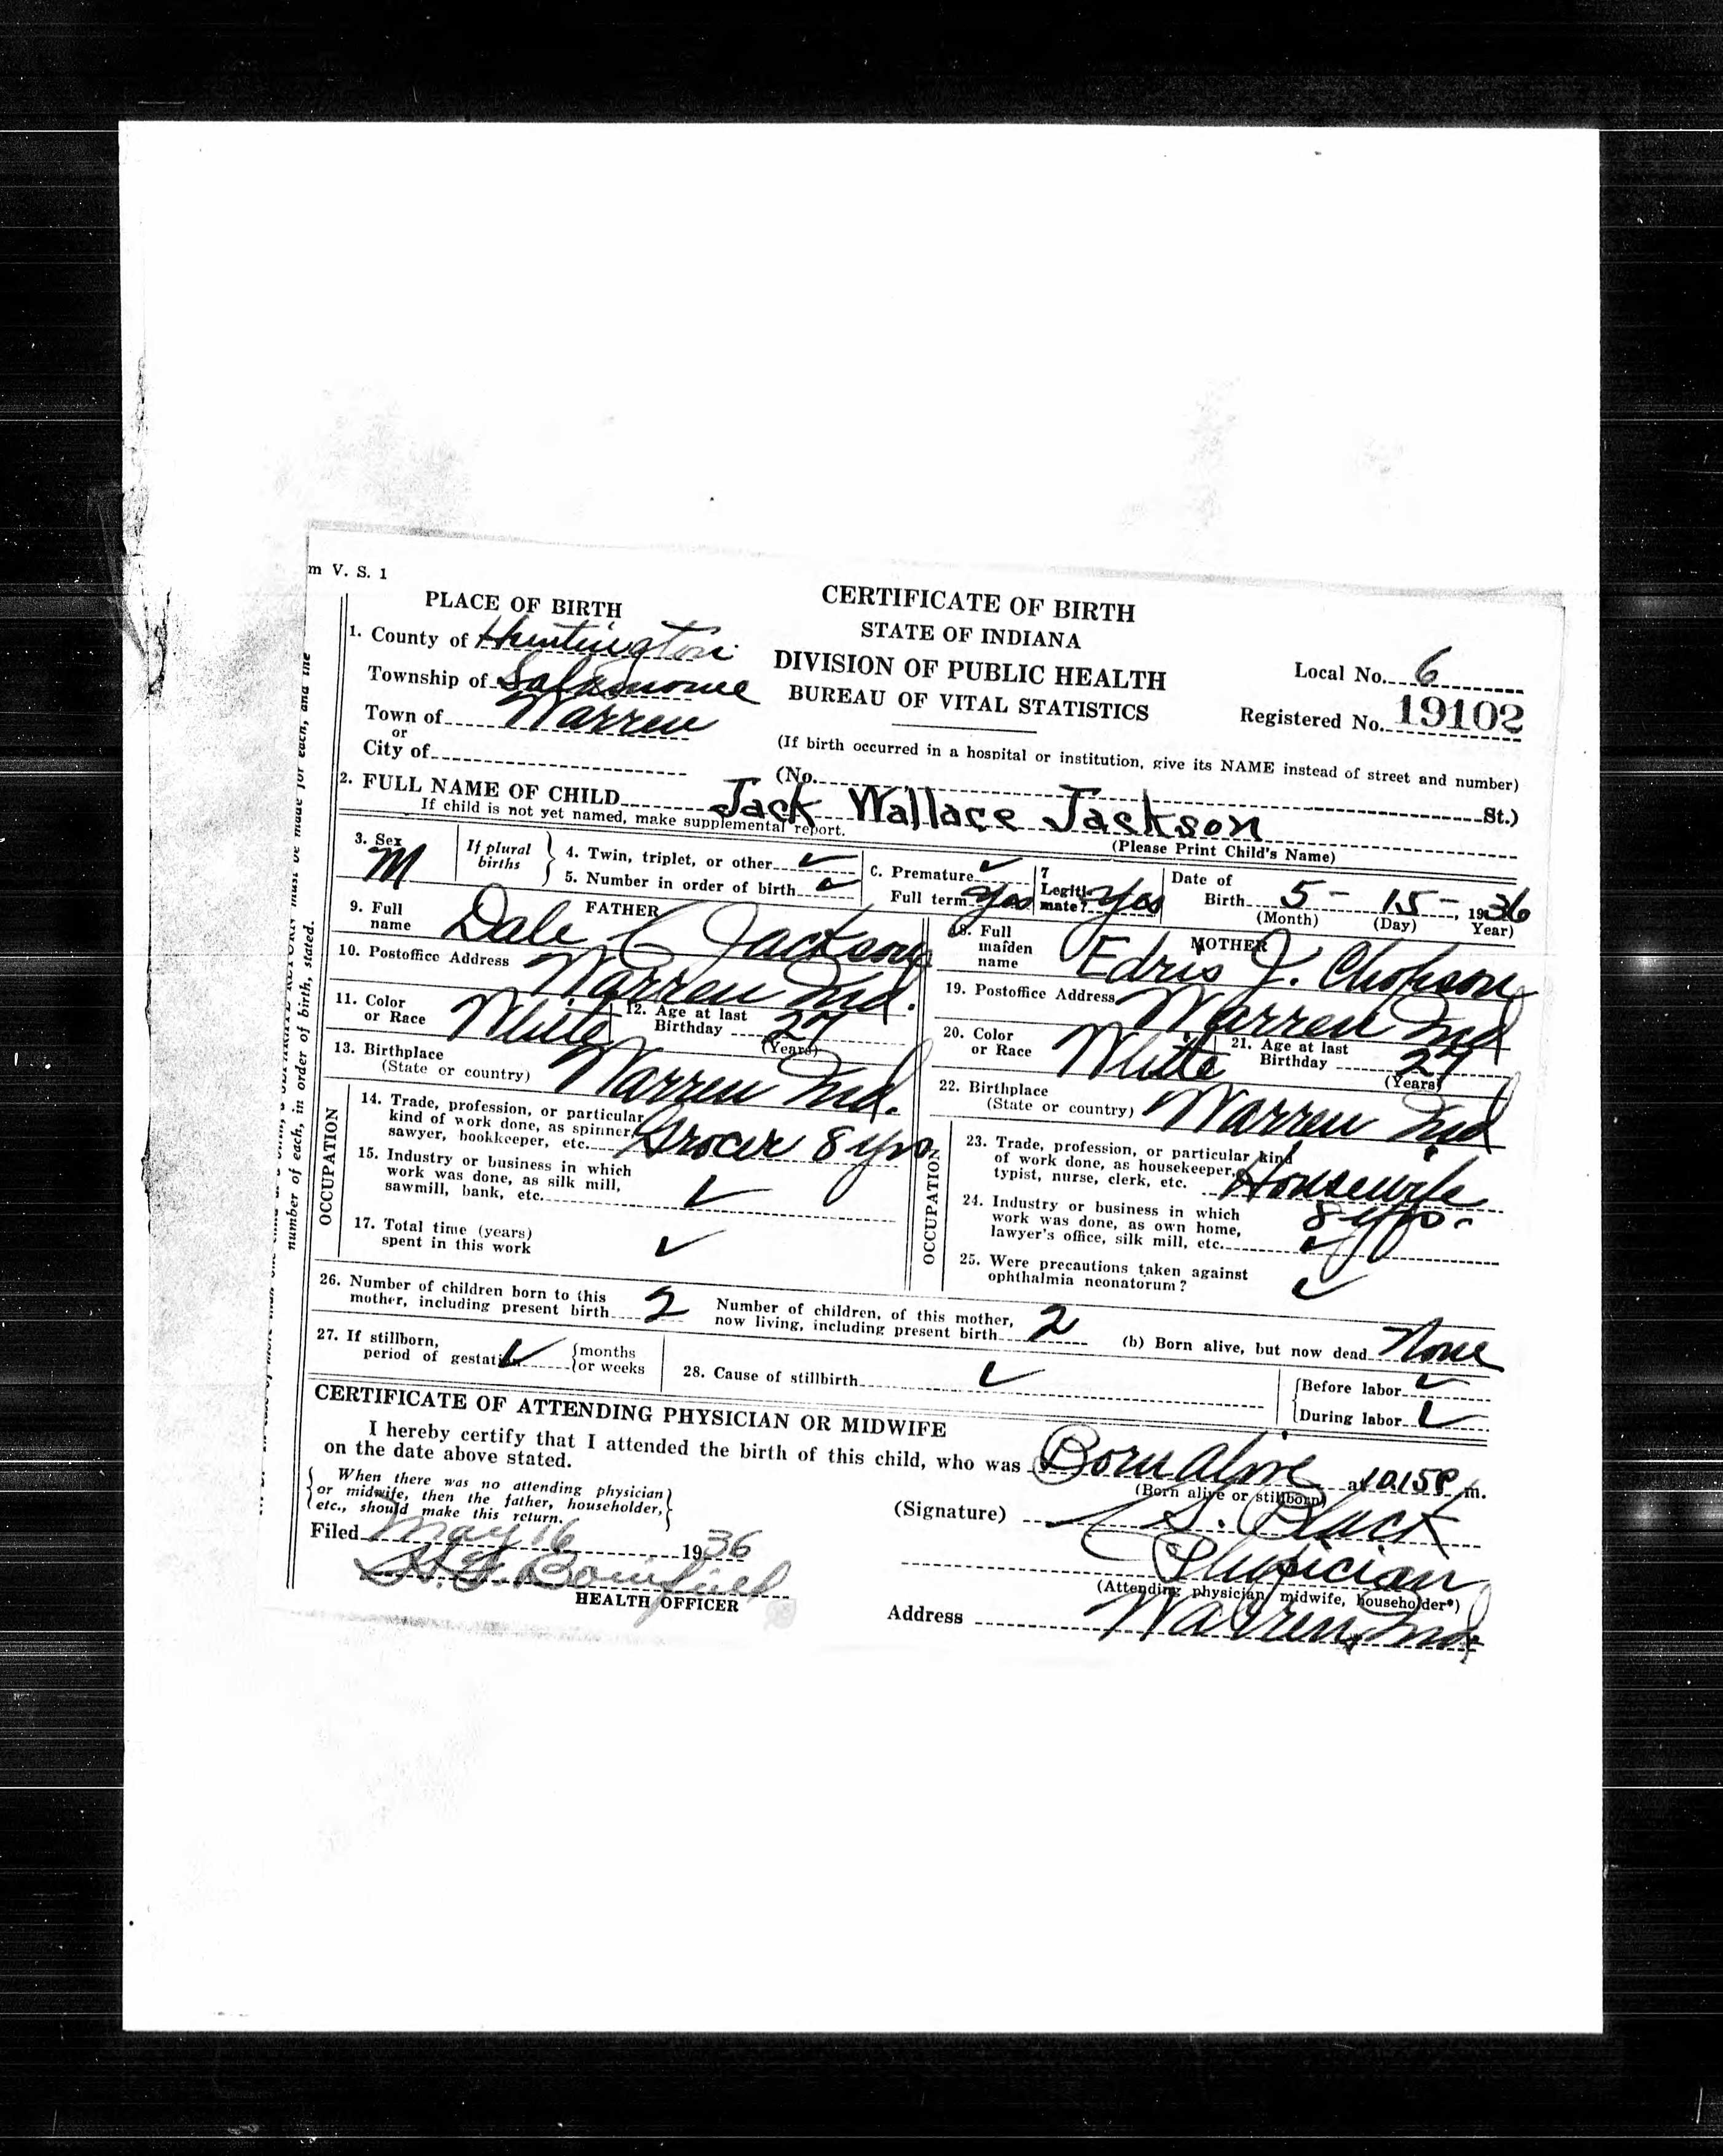 m V. S. 1
PLACE OF BIRTH
1. County of Huntington
Township of Salamonie
Town of Warren
or
City of
CERTIFICATE OF BIRTH
STATE OF INDIANA
DIVISION OF PUBLIC HEALTH
BUREAU OF VITAL STATISTICS
Local No. 6
Registered No. 19102
(If birth occurred in a hospital or institution, give its NAME instead of street and number)
(No. St.)
2. FULL NAME OF CHILD Jack Wallace Jackson
If child is not yet named, make supplemental report.
(Please Print Child's Name)
3. Sex M
If plural births
4. Twin, triplet, or other ✓
5. Number in order of birth ✓
C. Premature ✓
Full term Yes
7 Legitimate? Yes
Date of
Birth 5 - 15 -, 1936
(Month) (Day) Year)
FATHER
9. Full name Dale C Jackson
10. Postoffice Address Warren Ind.
11. Color or Race White
12. Age at last Birthday 27
(Years)
13. Birthplace
(State or country) Warren Ind.
OCCUPATION
14. Trade, profession, or particular
kind of work done, as spinner,
sawyer, bookkeeper, etc. Grocer 8 yrs.
15. Industry or business in which
work was done, as silk mill,
sawmill, bank, etc. ✓
17. Total time (years)
spent in this work ✓
MOTHER
18. Full maiden name Edris J.
19. Postoffice Address Warren Ind
20. Color or Race White
21. Age at last Birthday 27
(Years)
22. Birthplace
(State or country) Warren Ind
OCCUPATION
23. Trade, profession, or particular kind
of work done, as housekeeper,
typist, nurse, clerk, etc. Housewife
8 yrs.
24. Industry or business in which
work was done, as own home,
lawyer's office, silk mill, etc. ✓
25. Were precautions taken against
ophthalmia neonatorum? ✓
26. Number of children born to this
mother, including present birth 2
Number of children, of this mother,
now living, including present birth 2
(b) Born alive, but now dead None
27. If stillborn,
period of gestation ✓ {months
{or weeks
28. Cause of stillbirth ✓
{Before labor ✓
{During labor ✓
CERTIFICATE OF ATTENDING PHYSICIAN OR MIDWIFE
I hereby certify that I attended the birth of this child, who was Born Alive at 10.15 P. m.
on the date above stated.
(Born alive or stillborn)
{When there was no attending physician}
{or midwife, then the father, householder,}
{etc., should make this return.}
(Signature) S. Black
Physician
(Attending physician, midwife, householder*)
Filed May 16 1936
HEALTH OFFICER
Address Warren, Ind.
must be made for each, and the
number of each, in order of birth, stated.